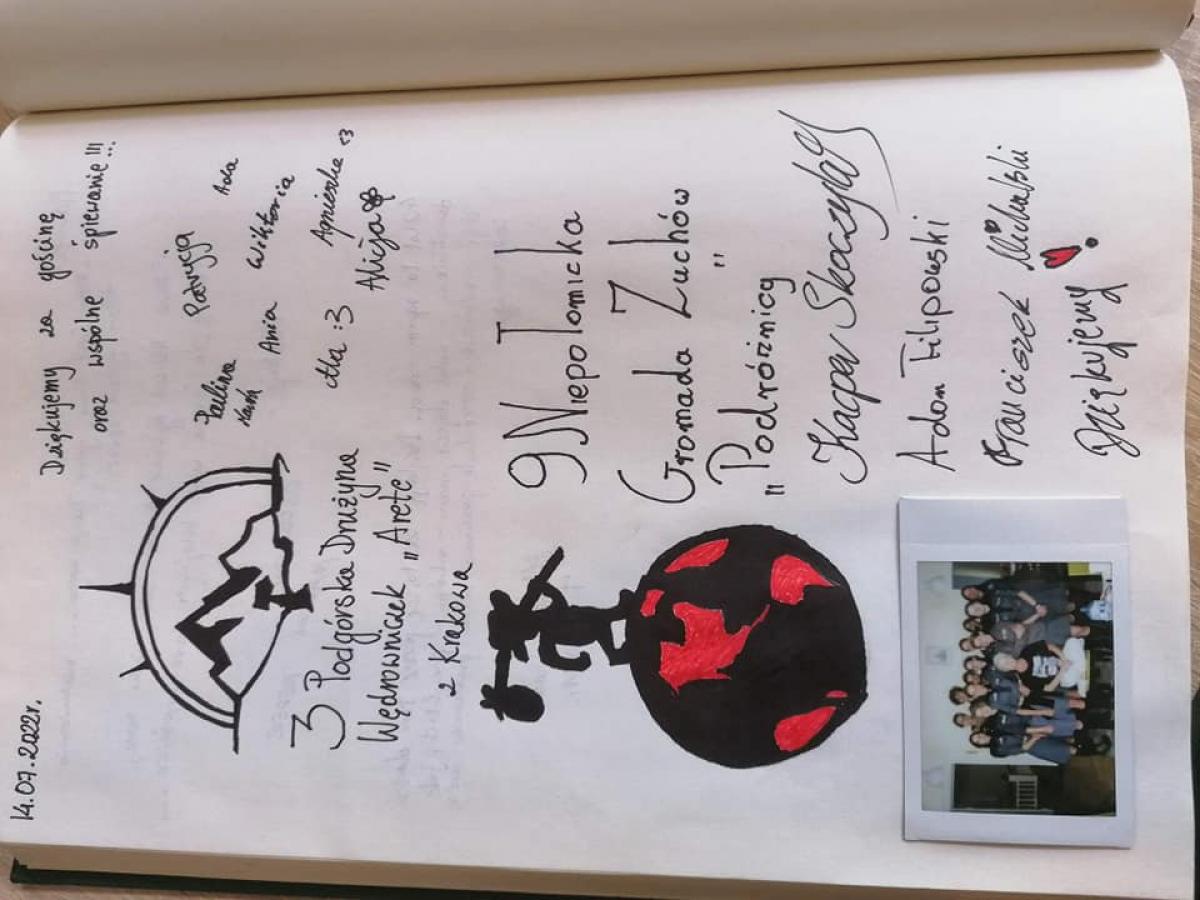 14.07.2022r.
Dziękujemy za gościnę
oraz wspólne śpiewanie !!!
Paulina
Kasia
Patrycja
Ania
Wiktoria
Ada
Ala :3
Agnieszka <3
Alicja
3 Podgórska Drużyna
Wędrowniczek „Arete”
z Krakowa
9 Niepołomicka
Gromada Zuchów
„Podróżnicy”
Kacper Skoczylas
Adam Filipowski
Franciszek Michalski
Dziękujemy